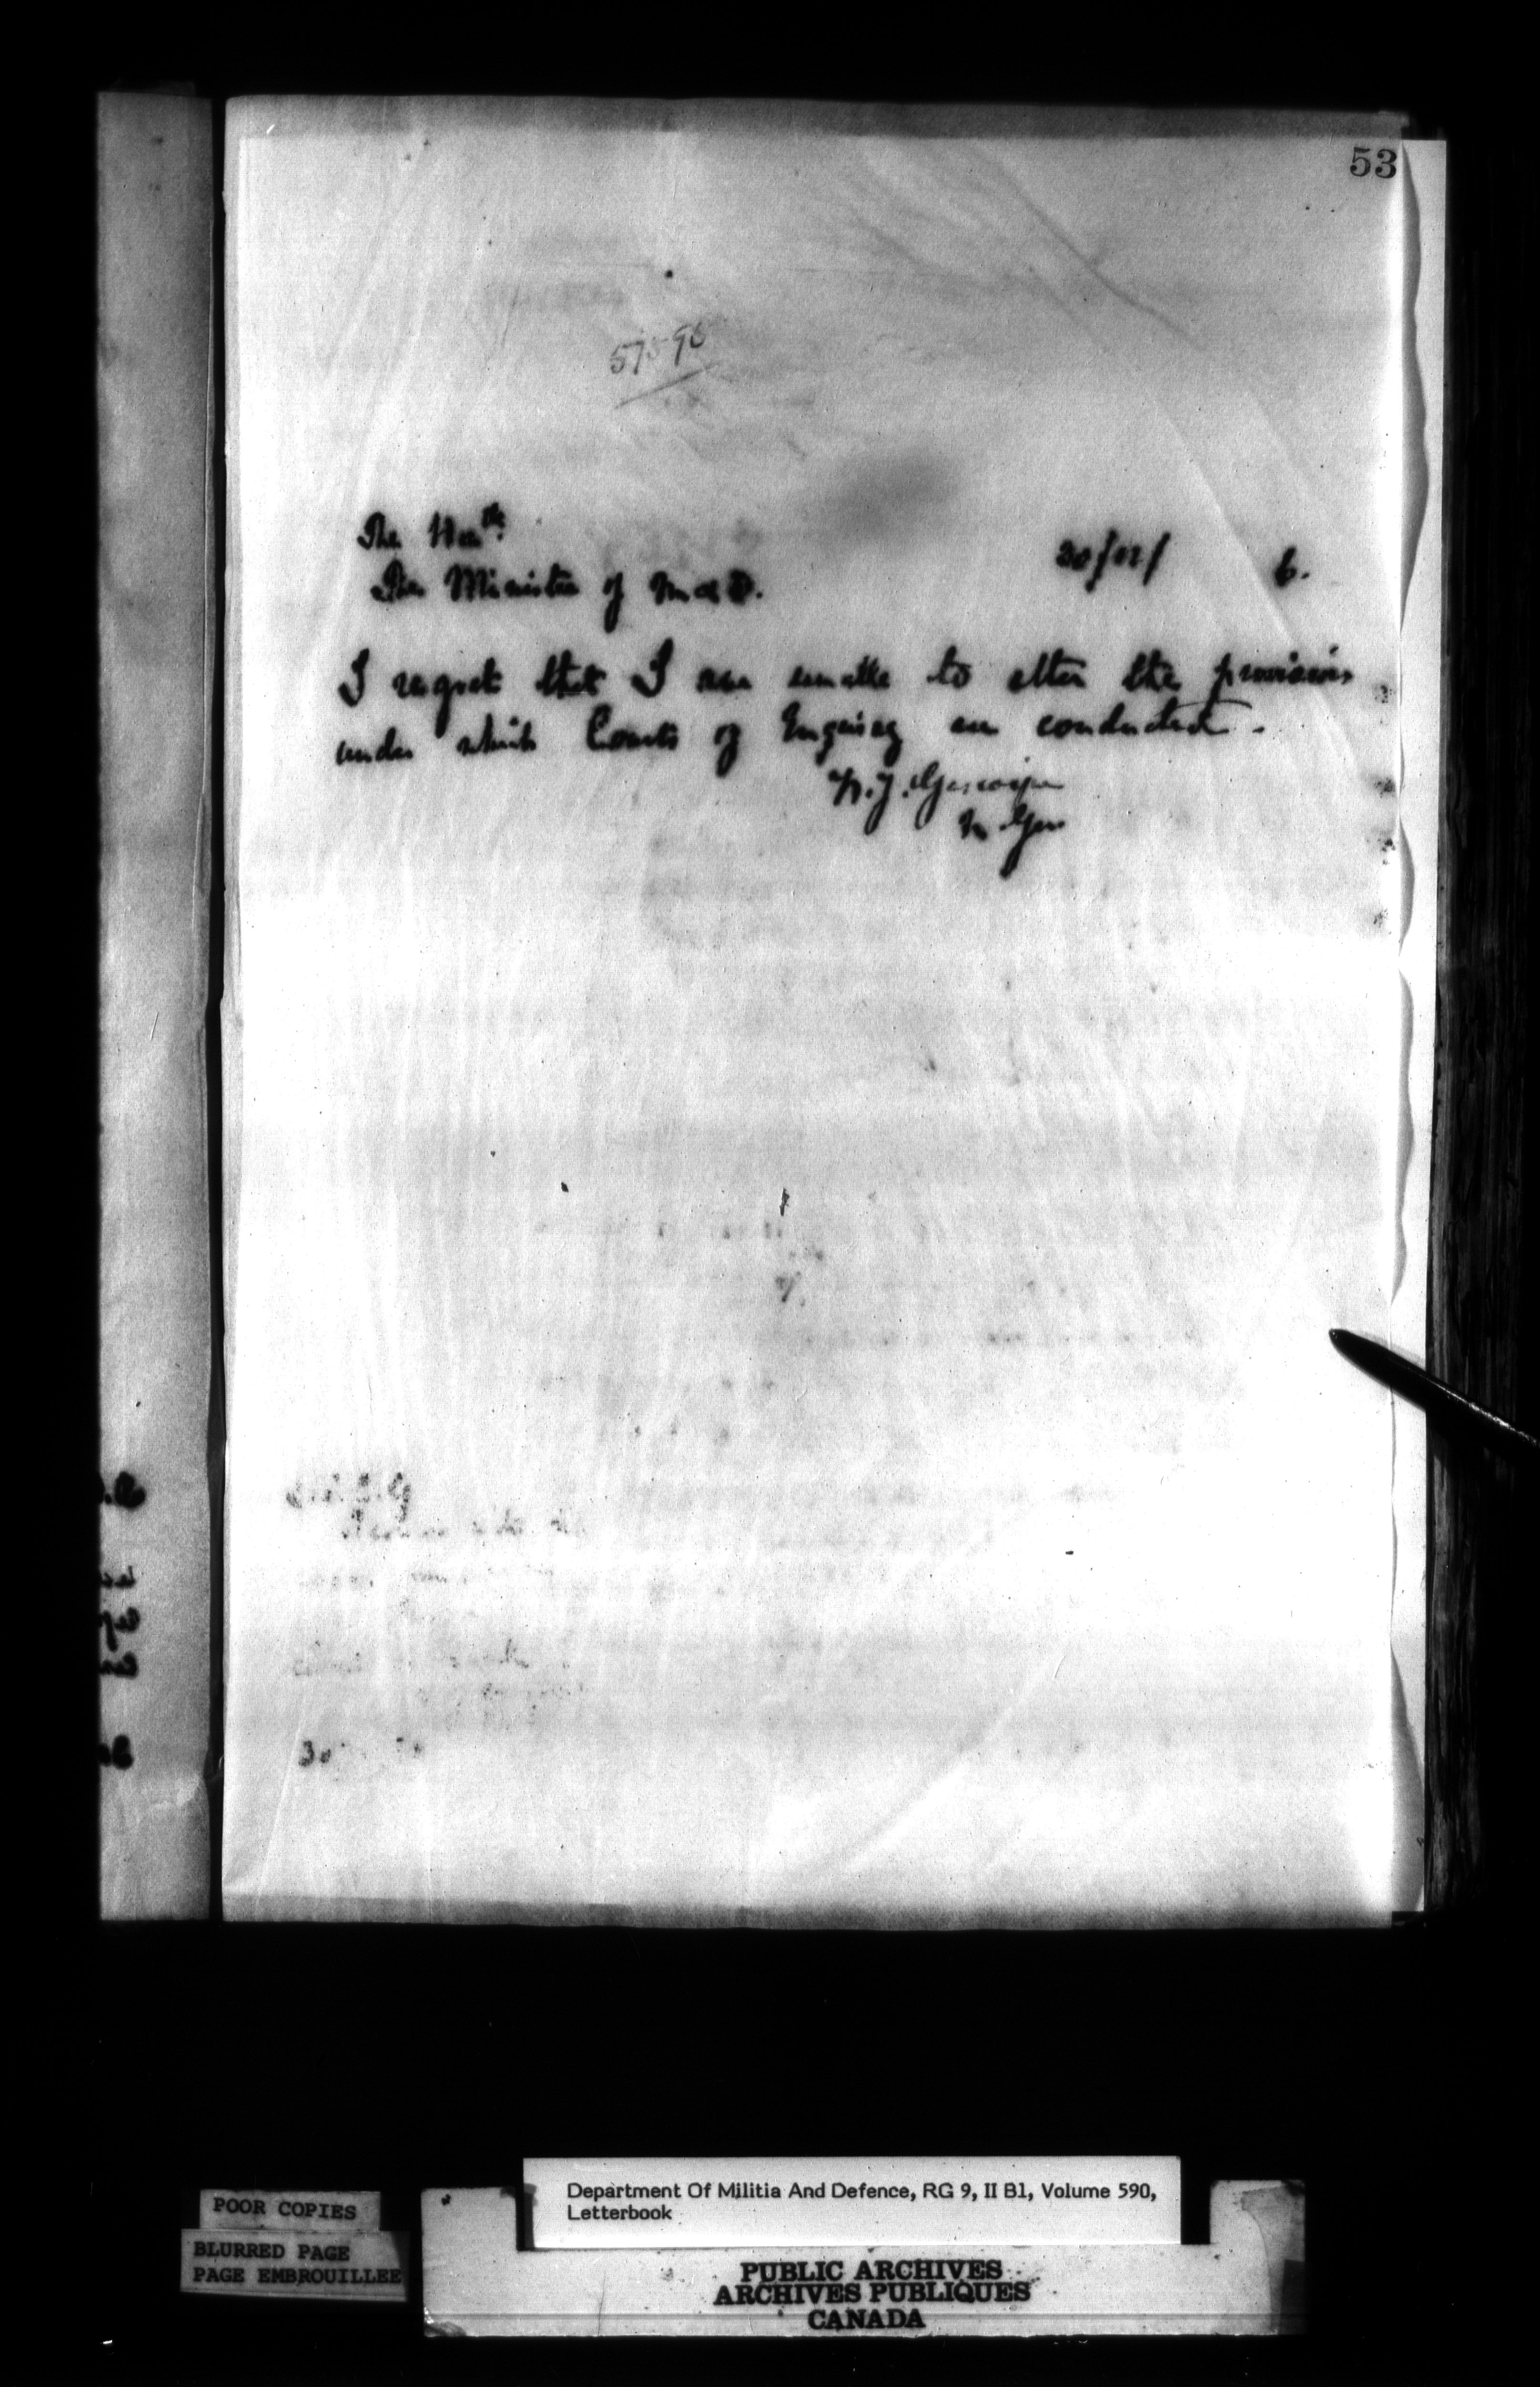 53
57595
The Honble
The Minister of M & D.
30/12/ 6.
I regret that I am unable to alter the provisions
under which Courts of Enquiry are conducted.
W.J. Gascoigne
M Gen
30
Department Of Militia And Defence, RG 9, II B1, Volume 590,
Letterbook
POOR COPIES
BLURRED PAGE
PAGE EMBROUILLEE
PUBLIC ARCHIVES
ARCHIVES PUBLIQUES
CANADA